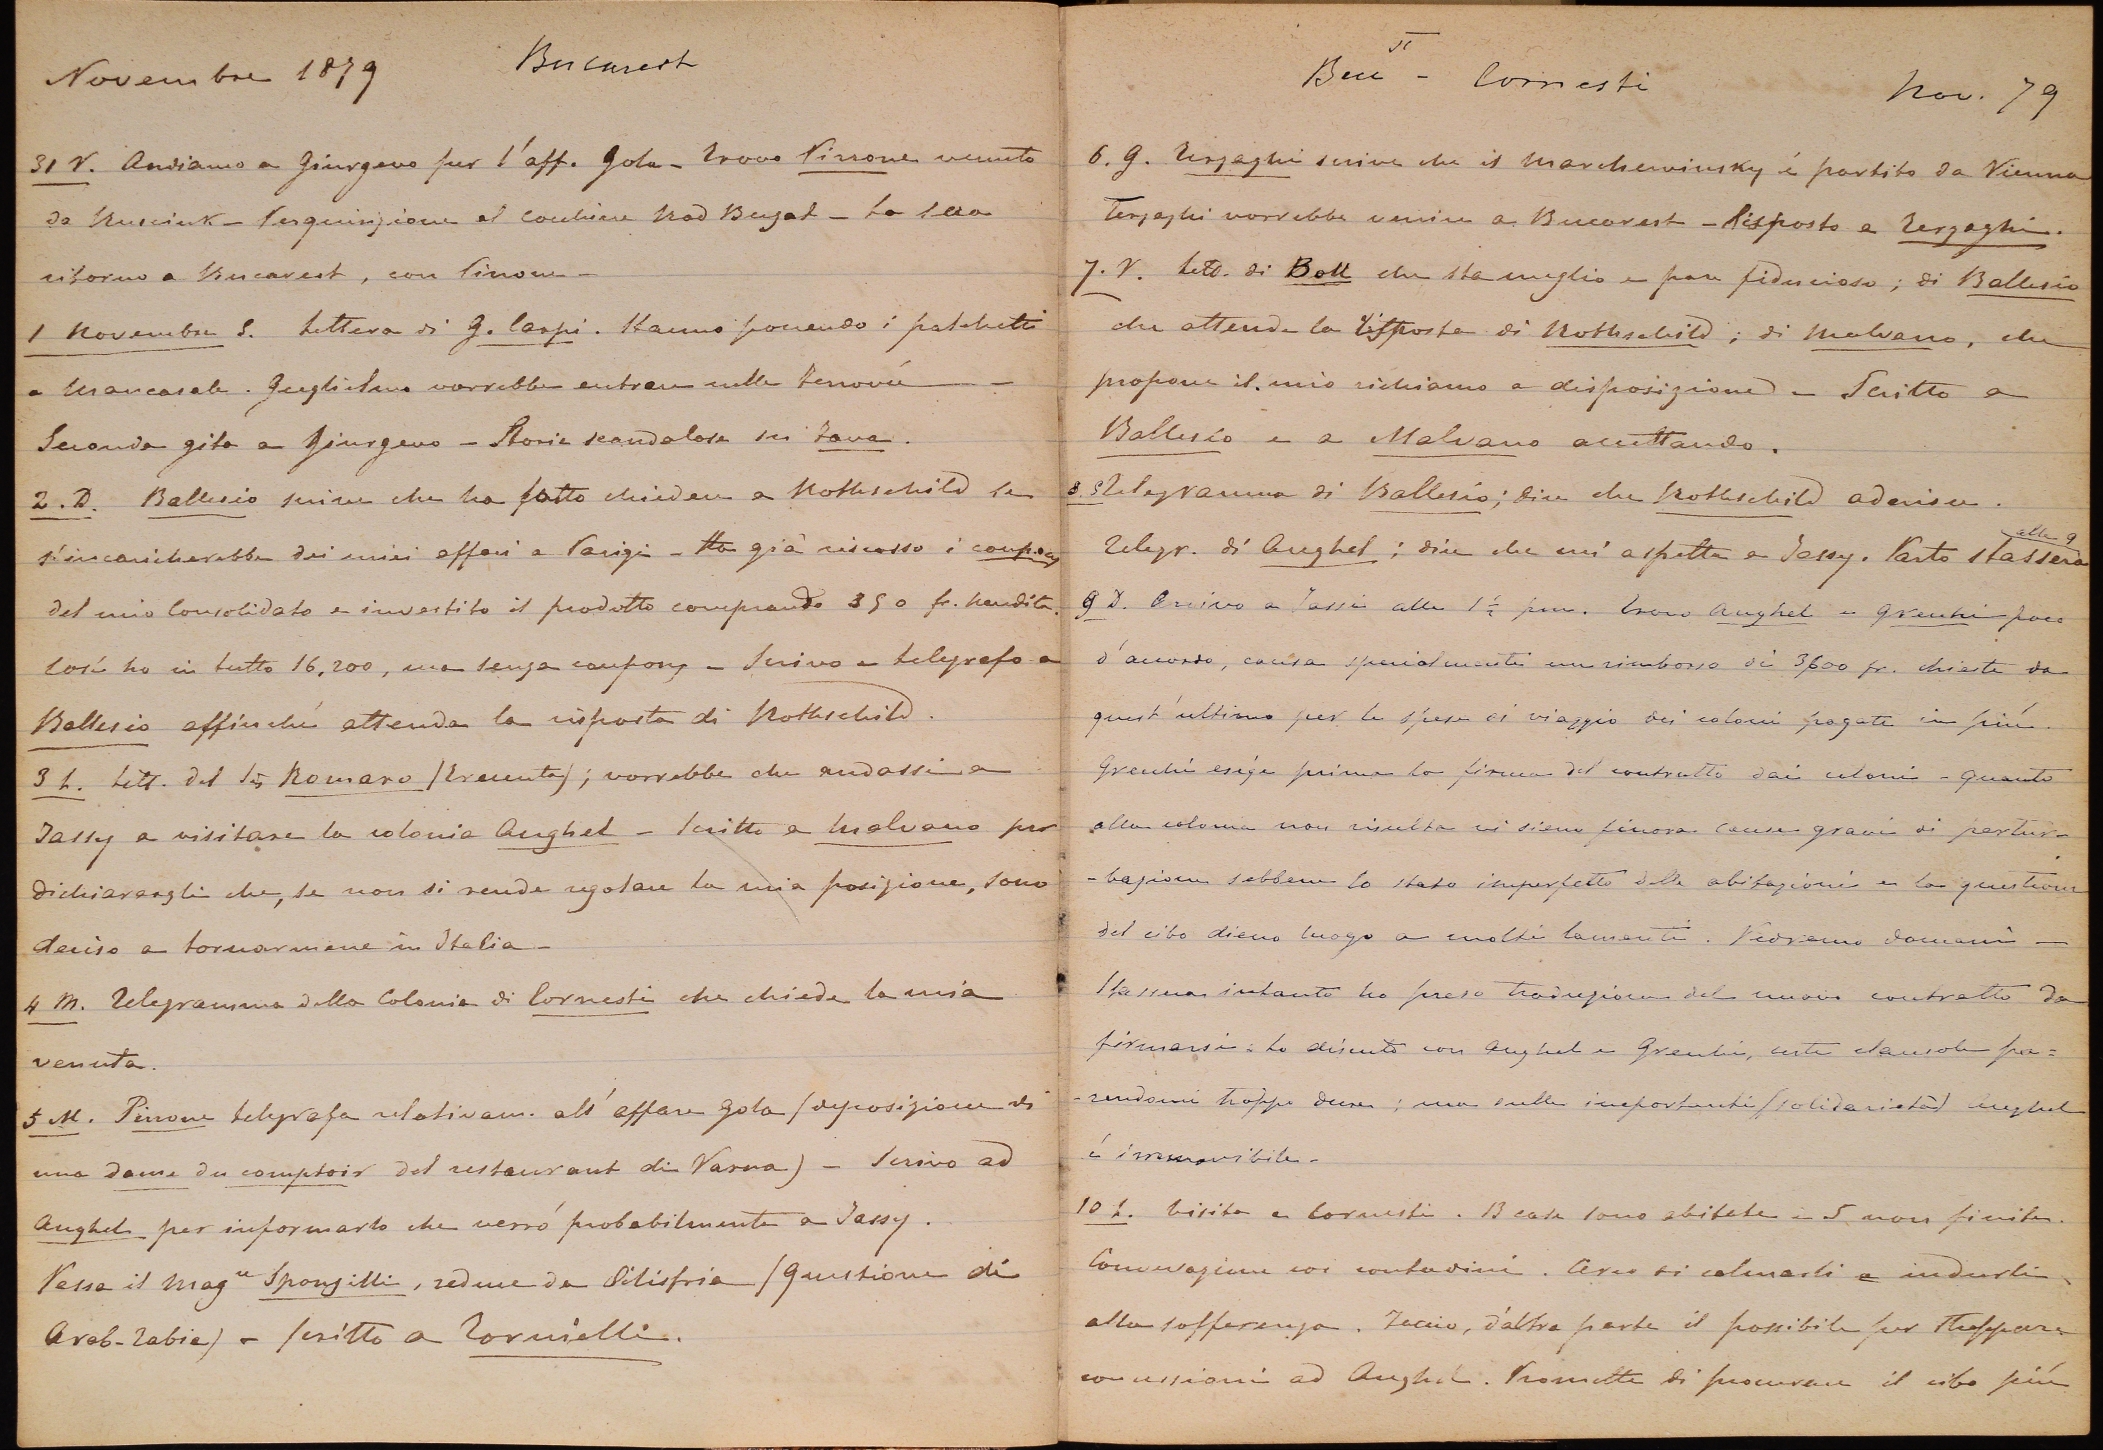 Novembre 1879 Bucarest
31 V. Andiamo a Giurgevo per l'aff. Gola - Trovo Pirrone venuto
da Rusciuk - Perquisizione al cocchiere - La sera
ritorno a Bucarest, con Pirrone -
1 Novembre S. Lettera di G. Carpi. Hanno ponendo i palchetti
a Mancasale. Guglielmo vorrebbe entrare nelle ferrovie -
Seconda gita a Giurgevo - Storie scandalose su Fava.
2. D. Ballesio scrive che ha fatto chiedere a Rothschild se
s'incaricherebbe dei miei affari a Parigi - Ha già riscosso i coupons
del mio Consolidato e investito il prodotto comprando 350 fr. rendita.
Così ho in tutto 16,200, ma senza coupons - Scrivo e telegrafo a
Ballesio affinché attenda la risposta di Rothschild.
3 L. Lett. del Romano (Tecuta); vorrebbe che andassi a
Jassy a visitare la colonia Anghel - Scritto a Malvano per
dichiarargli che, se non si rende regolare la mia posizione, sono
deciso a tornarmene in Italia -
4 M. Telegramma della Colonia di Cornesti che chiede la mia
venuta.
5 M. Pirrone telegrafa relativam. all'affare Gola (deposizione di
una dame du comptoir del restaurant di Varna) - Scrivo ad
Anghel per informarlo che verrò probabilmente a Jassy.
Passa il Magre Spongilli, reduce da Silistria (Questione di
Arab-Tabia) - Scritto a Tornielli.
Bucst - Cornesti Nov. 79
6. G. Terzaghi scrive che il Marchewinsky é partito da Vienna
Terzaghi vorrebbe venire a Bucarest - Risposto a Terzaghi.
7. V. Lett. di Boll che sta meglio e pare fiducioso; di Ballesio
che attende la risposta di Rothschild; di Malvano, che
propone il mio richiamo a disposizione - Scritto a
Ballesio e a Malvano accettando.
8. S Telegramma di Ballesio; dice che Rothschild aderisce.
Telegr. di Anghel; dice che mi aspetta a Jassy. Parto stassera alle 9
9 D. Arrivo a Jassi alle 1 1/2 pm. Trovo Anghel e Grenchi poco
d'accordo, causa specialmente un rimborso di 3600 fr. chiesto da
quest'ultimo per le spese di viaggio dei coloni pagate in più.
Grenchi esige prima la firma del contratto dai coloni - Quanto
alla colonia non risulta vi sieno finora cause gravi di pertur-
-bazione sebbene lo stato imperfetto delle abitazioni e la questione
del cibo dieno luogo a molti lamenti. Vedremo domani -
Stassera intanto ho preso traduzione del nuovo contratto da
firmarsi: lo discuto con Anghel e Grenchi, certe clausole pa=
-rendomi troppo dure; ma sulle importanti (solidarietà) Anghel
é irremovibile -
10 L. Visita a Cornesti. 13 case sono abitate e 5 non finite.
Conversazione coi contadini. Cerco di calmarli e indurli
alla sofferenza. Faccio, d'altra parte il possibile per strappare
concessioni ad Anghel. Promette di procurare il cibo più